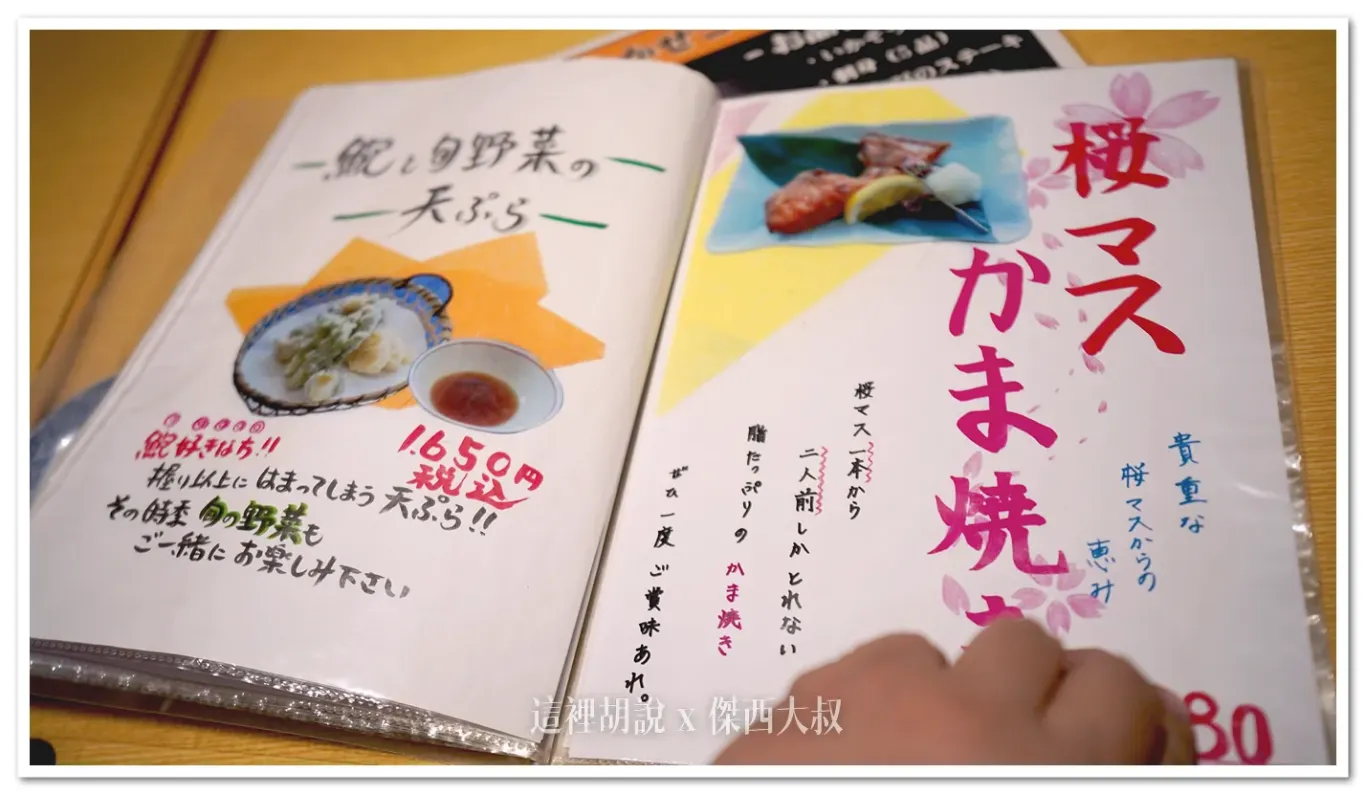 鮑と旬野菜の
天ぷら
1.650円
税込
好きなち!!
握り以上にはまってしまう天ぷら!!
その時季旬の野菜も
ご一緒にお楽しみ下さい
桜マス
かま焼き
貴重な
桜マスからの
恵み
桜マス一本から
二人前しかとれない
脂たっぷりのかま焼き
ぜひ一度ご賞味あれ。
30
のステーキ
這裡胡說 x 傑西大叔